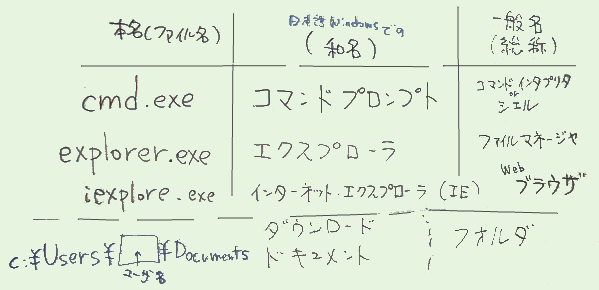 本名(ファイル名) 日本語Windowsでの 一般名
(和名) (総称)
cmd.exe コマンドプロンプト コマンドインタプリタ
or
シェル
explorer.exe エクスプローラ ファイルマネージャ
iexplore.exe インターネット・エクスプローラ(IE) Web
ブラウザ
ダウンロード フォルダ
C:¥Users¥ ↑ ¥Documents ドキュメント
ユーザ名